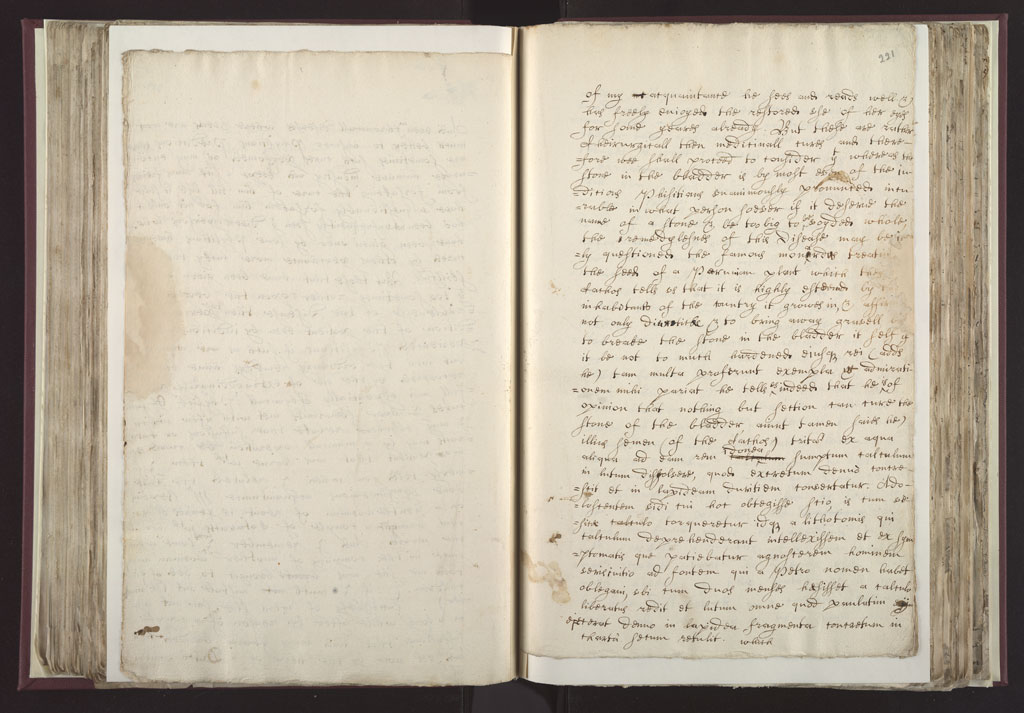 221
of my acquaintance he sees and reads well &
has freely enioyed the restored use of her eyes
for some yeares already. But these are rather
Chirurgicall then medicinall cures and there-
fore wee shall proceed to consider yt whereas the
stone in the bladder is by most of the iu-
=ditious Phisitions unanimously pronounced incu-
=rable in what person soever if it deserve the
name of a stone & be too big to be voyded whole
the remedylesnes of this disease may be
=ly questioned the famous monardes treating
the seed of a Peruvian plant which they
Cachos tells us that it is highly esteemed by the
inhabitants of the cuntry it growes in, & affirm
not only diuretick & to bring away gravell
to breake the stone in the bladder it self if
it be not to much hardened eiusq rei (adds
he) tam multa proferunt exempla ut admirati-
=onem mihi pariat he tells us indeed that he is of
opinion that nothing but section can cure the
stone of the bladder aiunt tamen (saith he)
illius semen (of the Cachos) tritum ex aqua
aliqua ad eam rem idonea sumptum calculum
in lutum dissolvere, quod excretum denuo concre-
=scit et in lapideam duritiem convertatur. Ado-
=lescentem vidi cui hoc obtegisse scio, is cum ve-
=sicae calculo torqueretur idq a lithotomis qui
calculum deprehenderant intellexissem et ex sym
=ptomatis que patiebatur agnoscerem hominem
veris initio ad fontem qui a Petro nomen habet
oblegavi, ubi cum duos menses hæsisset a calculo
liberatus redit et lutum omne quod paulatim
eiecerat denuo in lapidea fragmenta concretum in
charta secum retulit. which